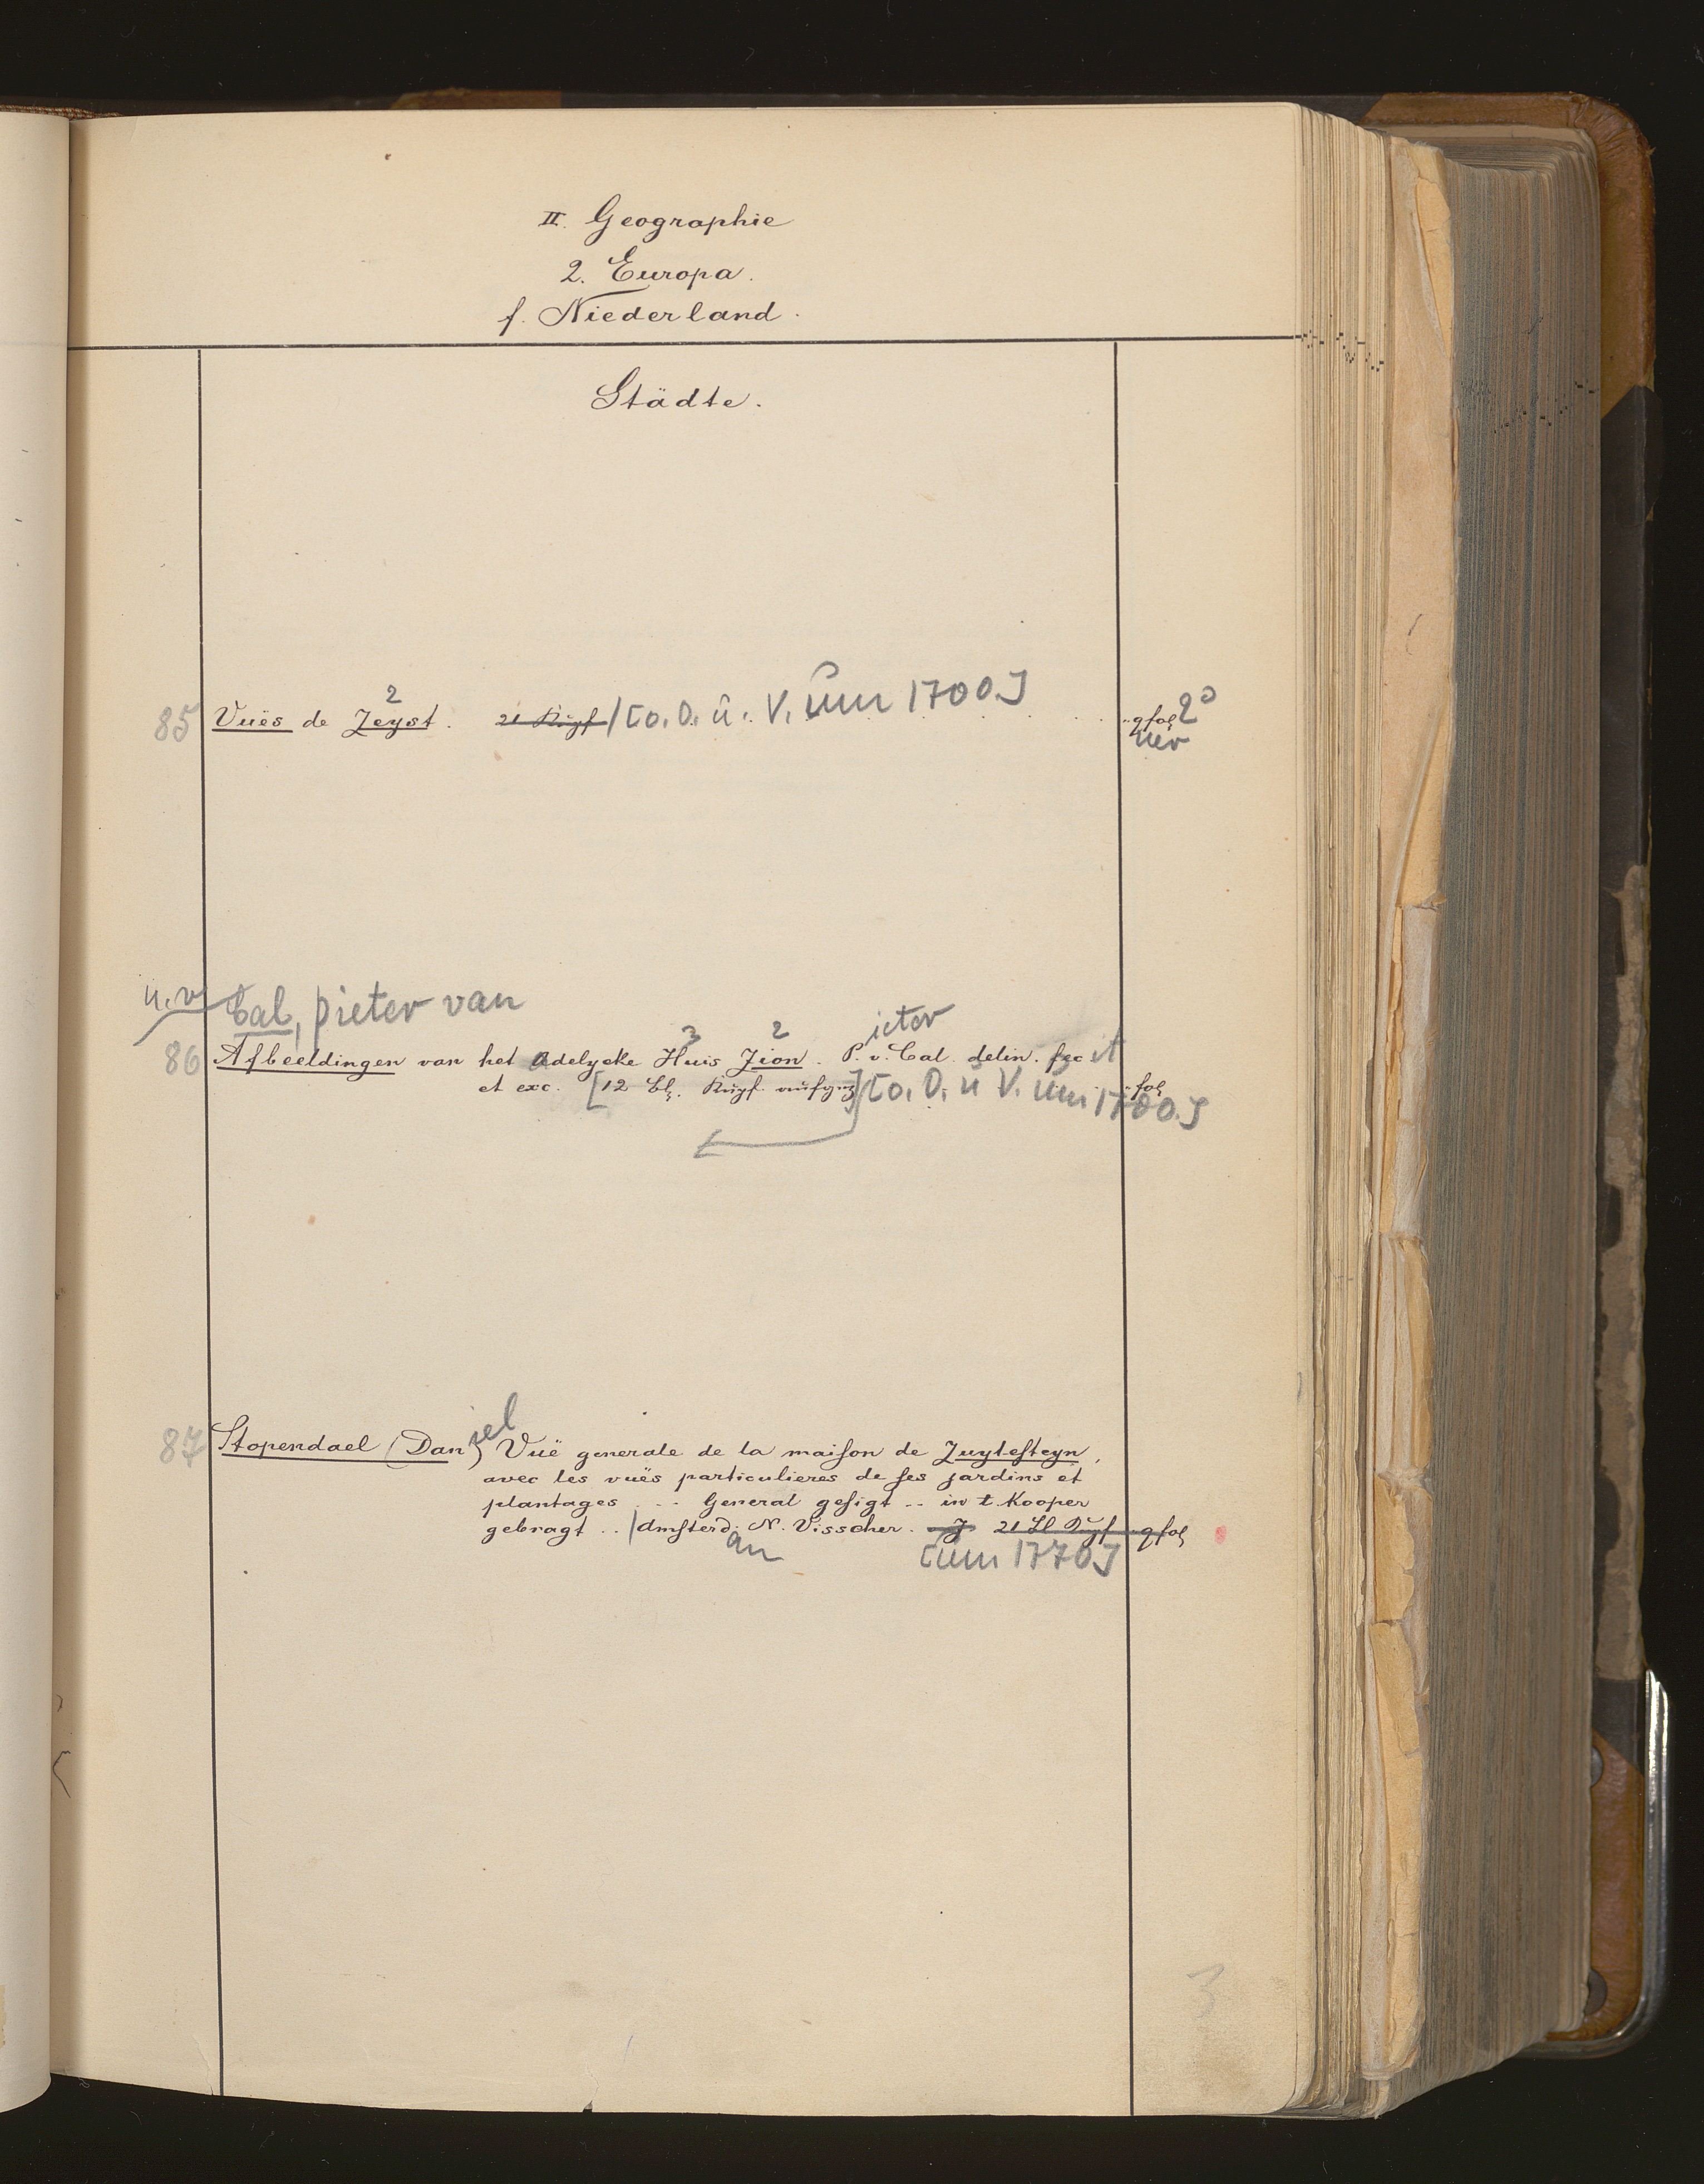 II. Geographie
2. Europa.
f. Niederland.
Städte.
2
85 Vuës de Zeyst. 21 Kupf / [o. O. u. V. um 1700.] qfol 2°
quer
u. v Cal, Pieter van
3 2 ieter
86 Afbeeldingen van het adelycke Huis Zion. P. v. Cal. delin. fec it
et exc. [12 Bl. Kupf. aufgez] [o. O. u V. um 1700.] fol
iel
87 Stopendael (Dan) Vuë generale de la maison de Zuylesteyn,
avec les vuës particulieres de ses jardins et
plantages ... General gesigt .. in t Kooper
gebragt .. / Amsterd. N. Visscher. J 21 Bl Kupf qfol
am [um 1770]
3